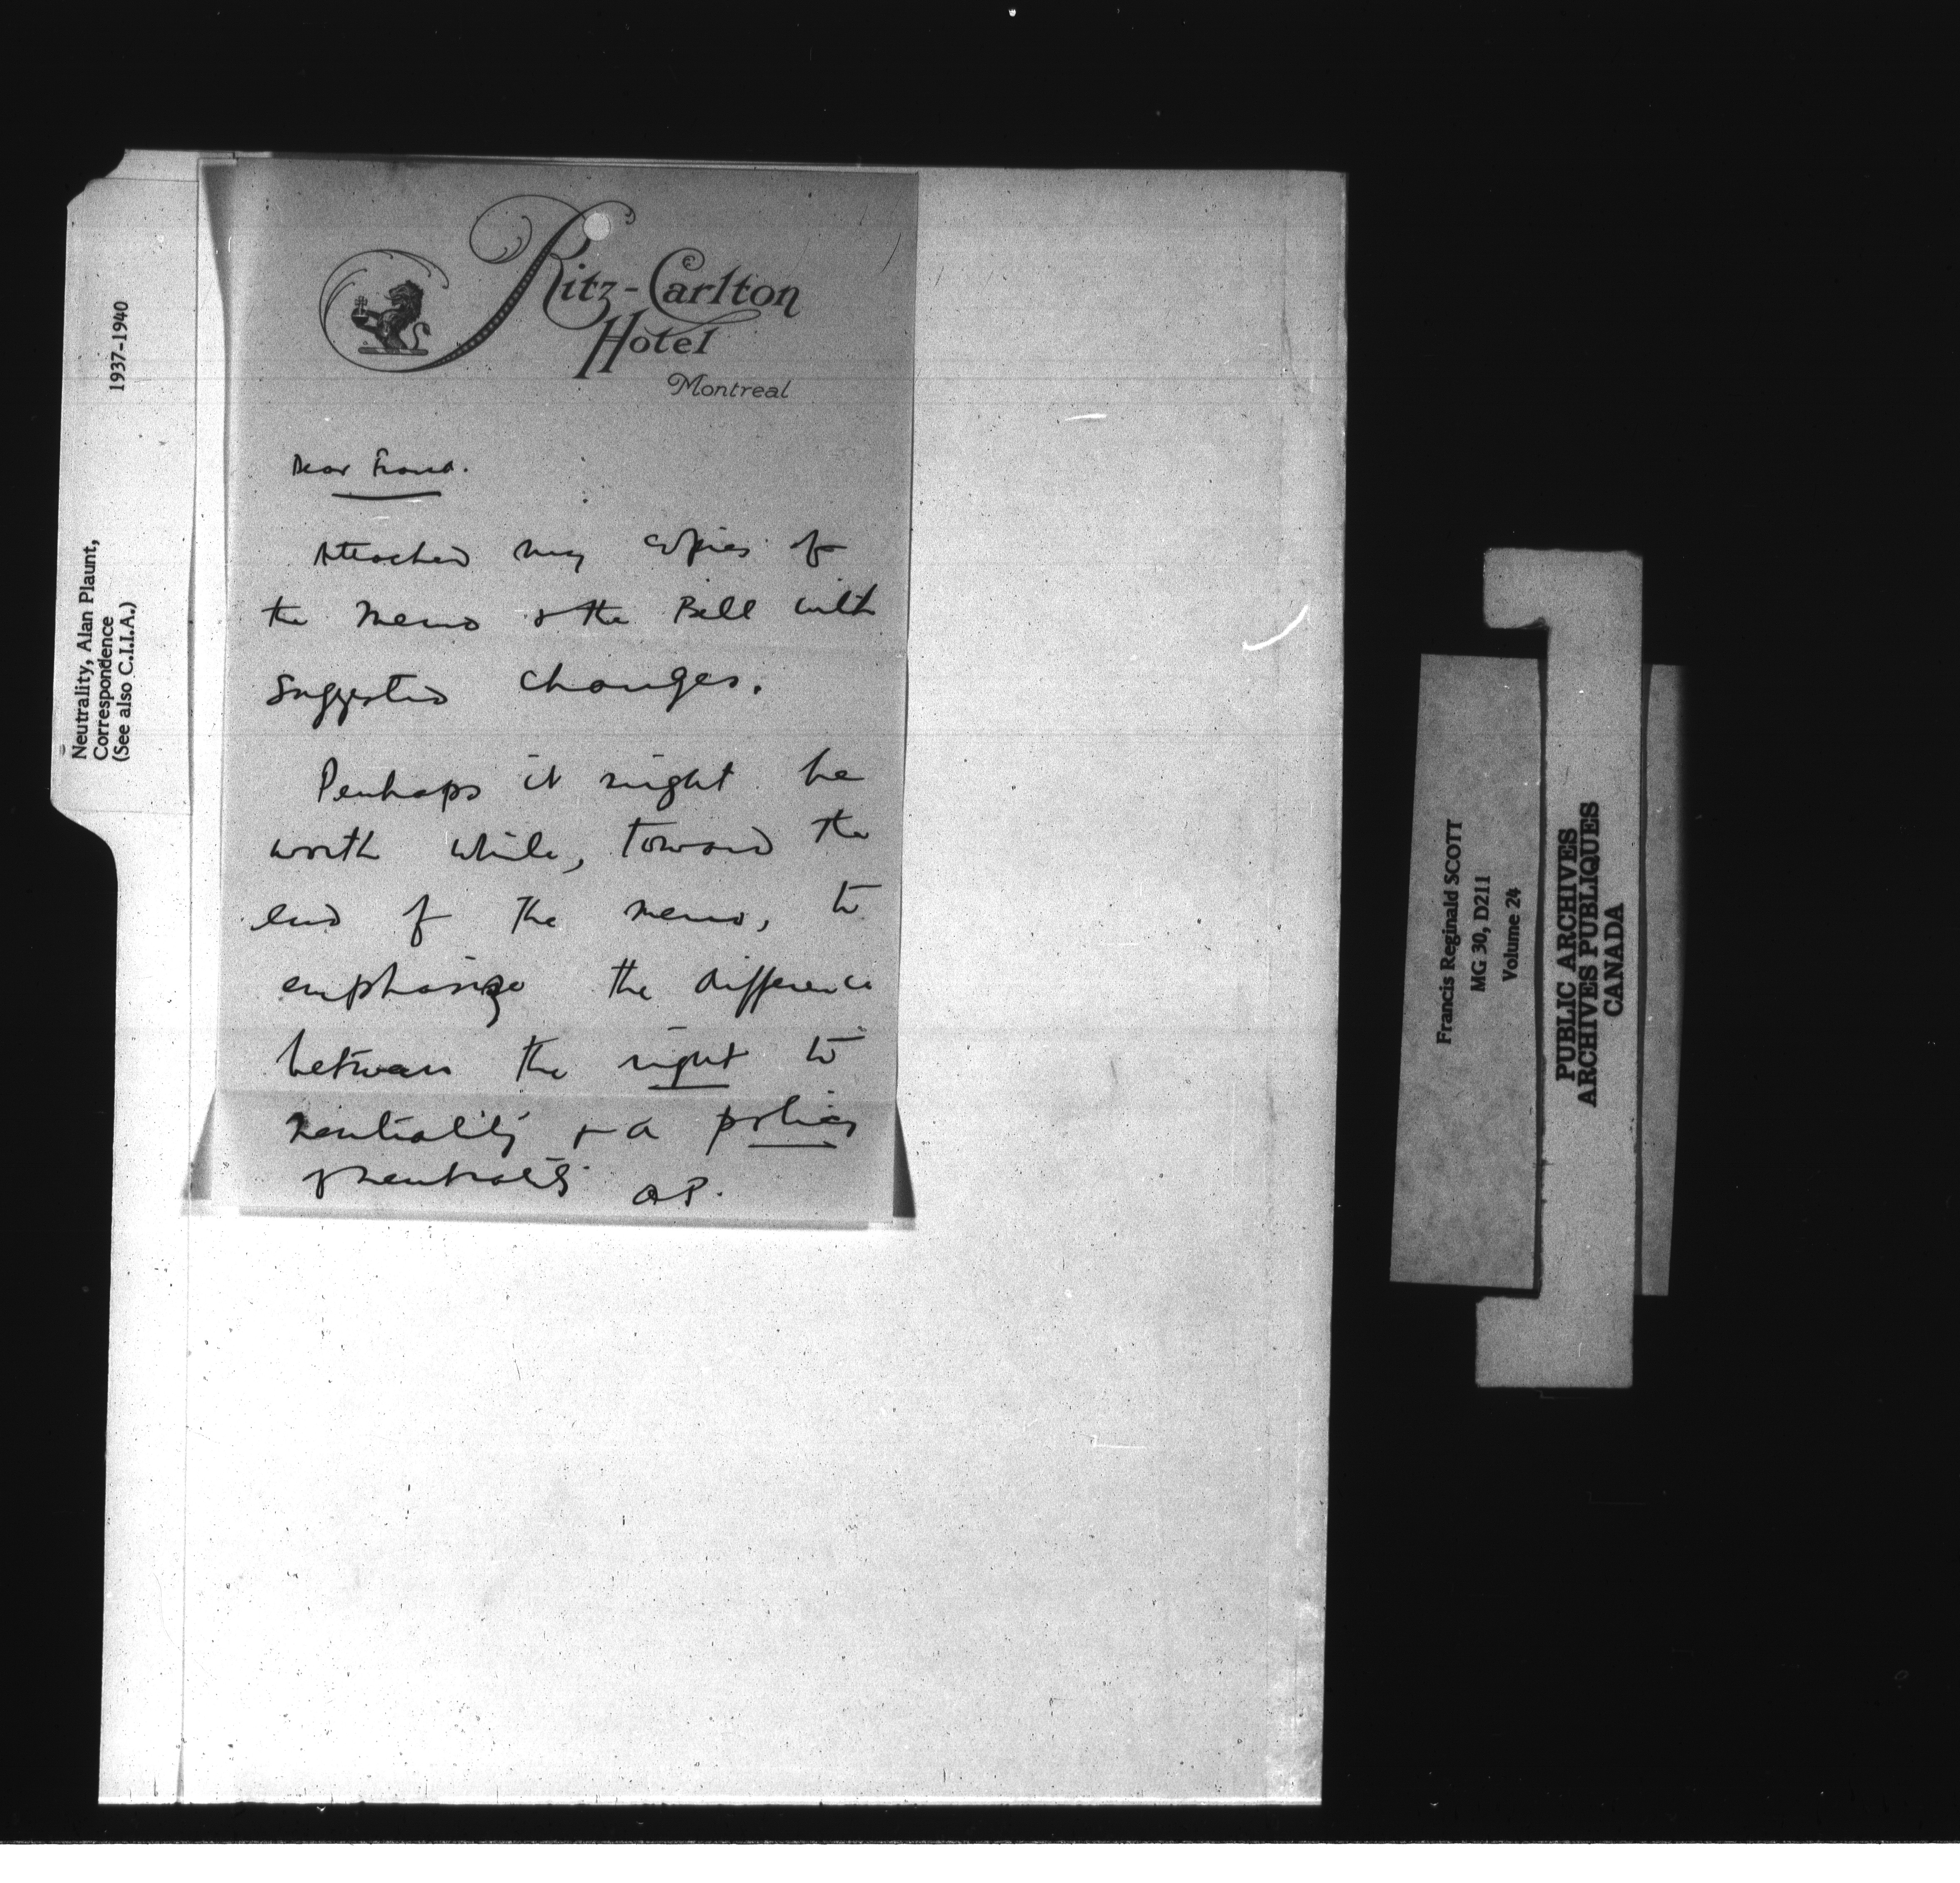 Ritz-Carlton
Hotel
Montreal
Dear Frank.
Attached my copies of
the memo & the Bill with
suggested changes.
Perhaps it might be
worth while, toward the
end of the memo, to
emphasize the difference
between the right to
neutrality & a policy
of neutrality. AP.
Neutrality, Alan Plaunt,
Correspondence
(See also C.I.I.A.)
1937-1940
Francis Reginald SCOTT
MG 30, D211
Volume 24
PUBLIC ARCHIVES
ARCHIVES PUBLIQUES
CANADA